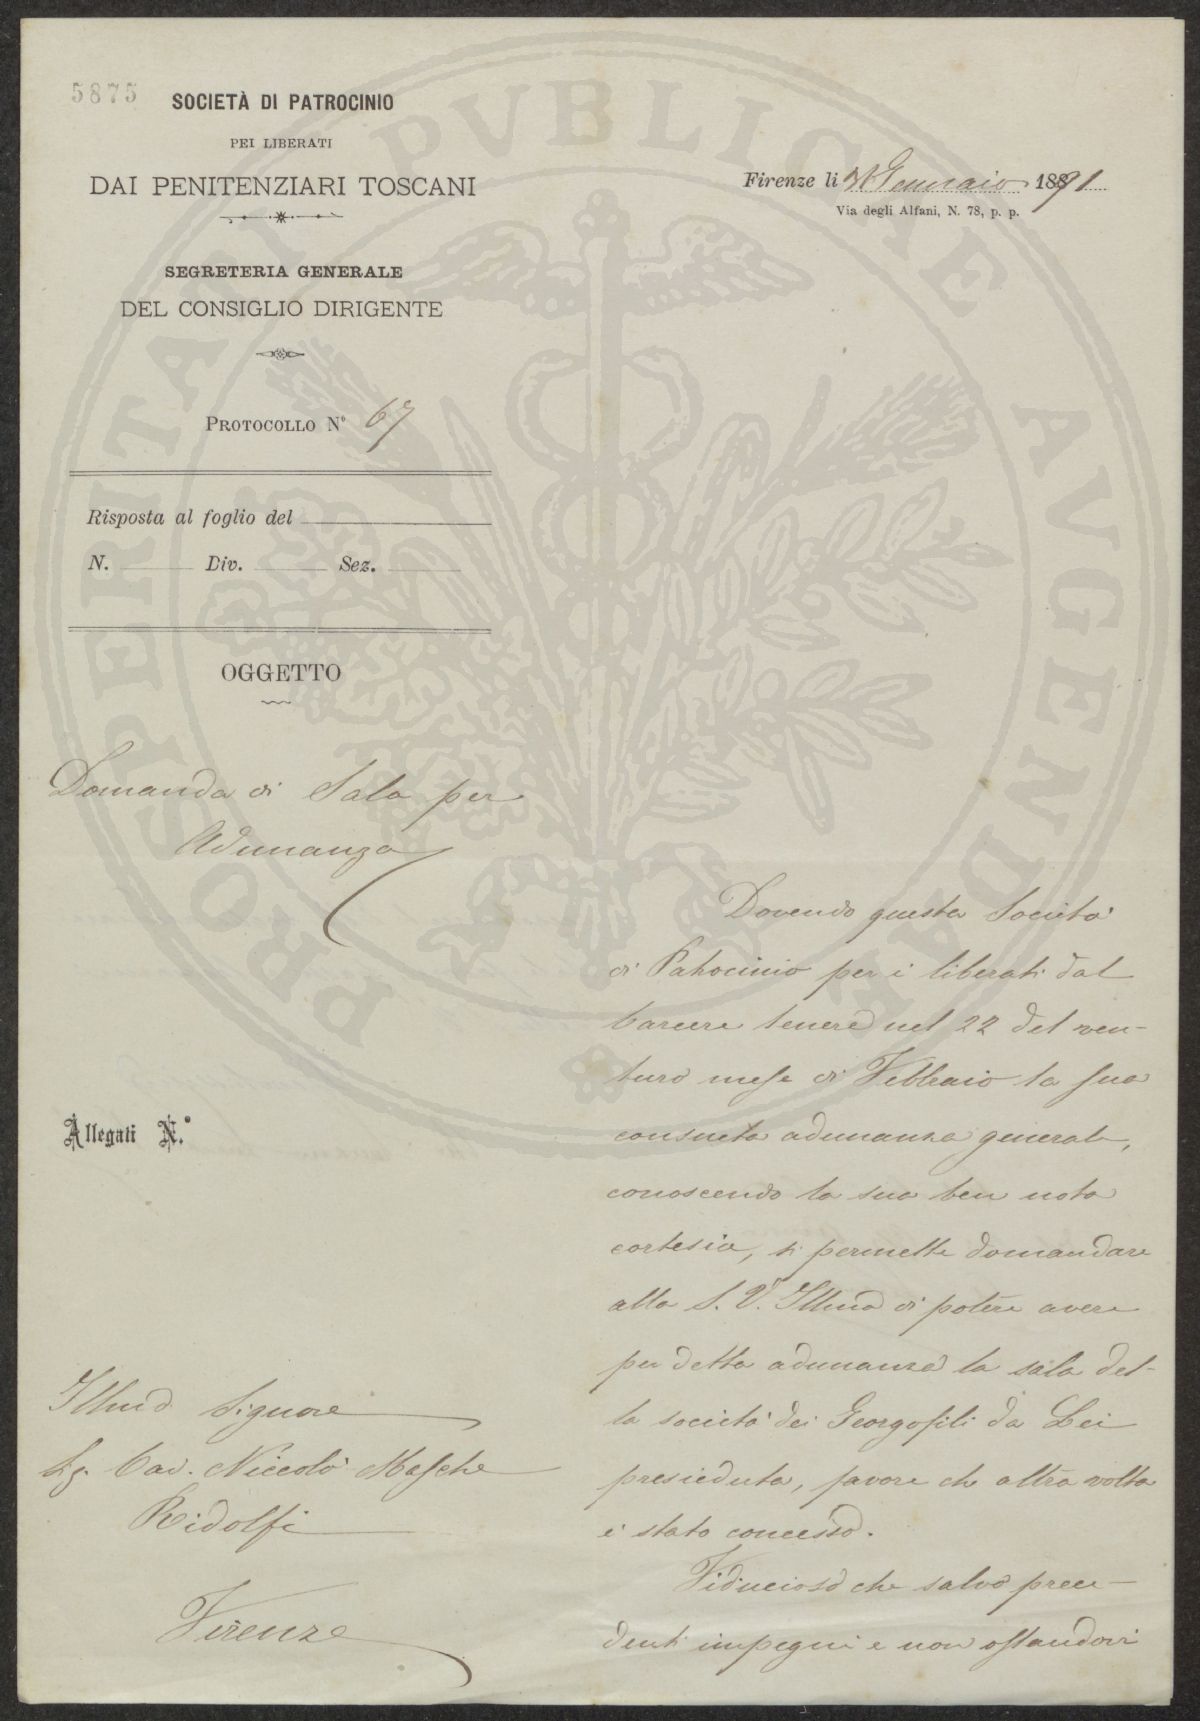 5875
SOCIETÀ DI PATROCINIO
PEI LIBERATI
DAI PENITENZIARI TOSCANI
Firenze li 31 Gennaio 1891
Via degli Alfani, N. 78, p. p.
SEGRETERIA GENERALE
DEL CONSIGLIO DIRIGENTE
PROTOCOLLO N° 67
Risposta al foglio del
N. Div. Sez.
OGGETTO
Domanda di Sala per
Adunanza
Dovendo questa Società
di Patrocinio per i liberati dal
Carcere tenere nel 22 del ven-
turo mese di Febbraio la sua
consueta adunanza generale,
conoscendo la sua ben nota
cortesia, si permette domandare
alla S. V. Illma di potere avere
per detta adunanza la sala del-
la società dei Georgofili da Lei
presieduta, favore che altra volta
è stato concesso.
Fiducioso che salvo prece-
denti impegni e non ostandovi
Allegati N.°
Illmo Signore
Sig. Cav. Niccolò Marche
Ridolfi
Firenze
PROSPERITATI PVBLICAE AVGENDAE